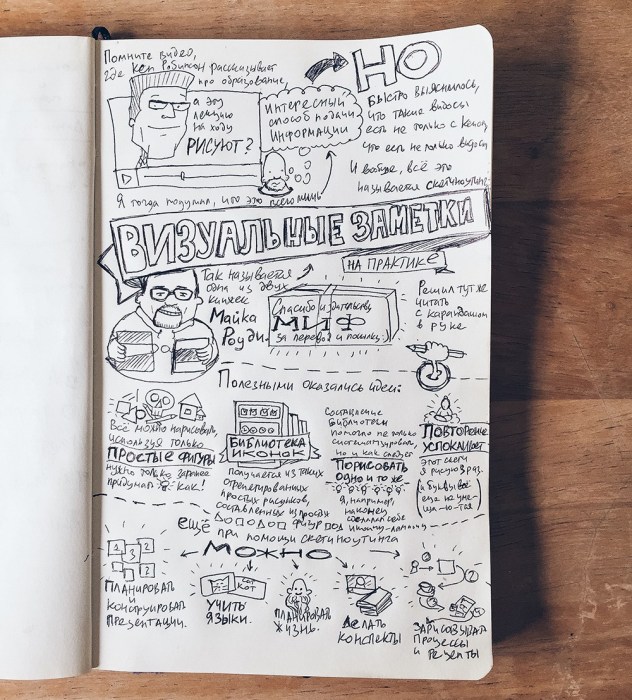 Помните видео,
где Кен Робинсон рассказывает
про образование,
а эту
лекцию
на ходу
РИСУЮТ?
Интересный
способ подачи
информации
Я тогда подумал, что это всего лишь
НО
Быстро выяснилось,
что такие видосы
есть не только с Кеном,
что есть не только видосы
И вообще, всё это
называется скетчноутинг.
ВИЗУАЛЬНЫЕ ЗАМЕТКИ
НА ПРАКТИКЕ
Так называется
одна из двух
книжек
Майка
Роуди.
Спасибо издательству
МИФ
за перевод и посылку:)
Решил тут же
читать
с карандашом
в руке
Полезными оказались идеи:
Всё можно нарисовать,
используя только
ПРОСТЫЕ ФИГУРЫ
нужно только заранее
придумать как!
БИБЛИОТЕКА
ИКОНОК
получается из таких
отрепетированных
простых рисунков,
составленных из простых
фигур
Составление
библиотеки
помогло не только
систематизировать,
но и как следует
ПОРИСОВАТЬ
одно и то же
Я, например,
наконец
сделал себе
иконку-лампочку
ПОВТОРЕНИЕ
УСПОКАИВАЕТ
этот скетч
я рисую раз.
(и буквы всё
еще не уме-
ща-ют-ся)
ещё
при помощи скетчноутинга
МОЖНО
1 2
3 2
ПЛАНИРОВАТЬ
и
КОНСТРУИРОВАТЬ
ПРЕЗЕНТАЦИИ.
CAT
КОТ
УЧИТЬ
ЯЗЫКИ.
ПЛАНИРОВАТЬ
ЖИЗНЬ.
ДЕЛАТЬ
КОНСПЕКТЫ
ЗАРИСОВЫВАТЬ
ПРОЦЕССЫ
И РЕЦЕПТЫ